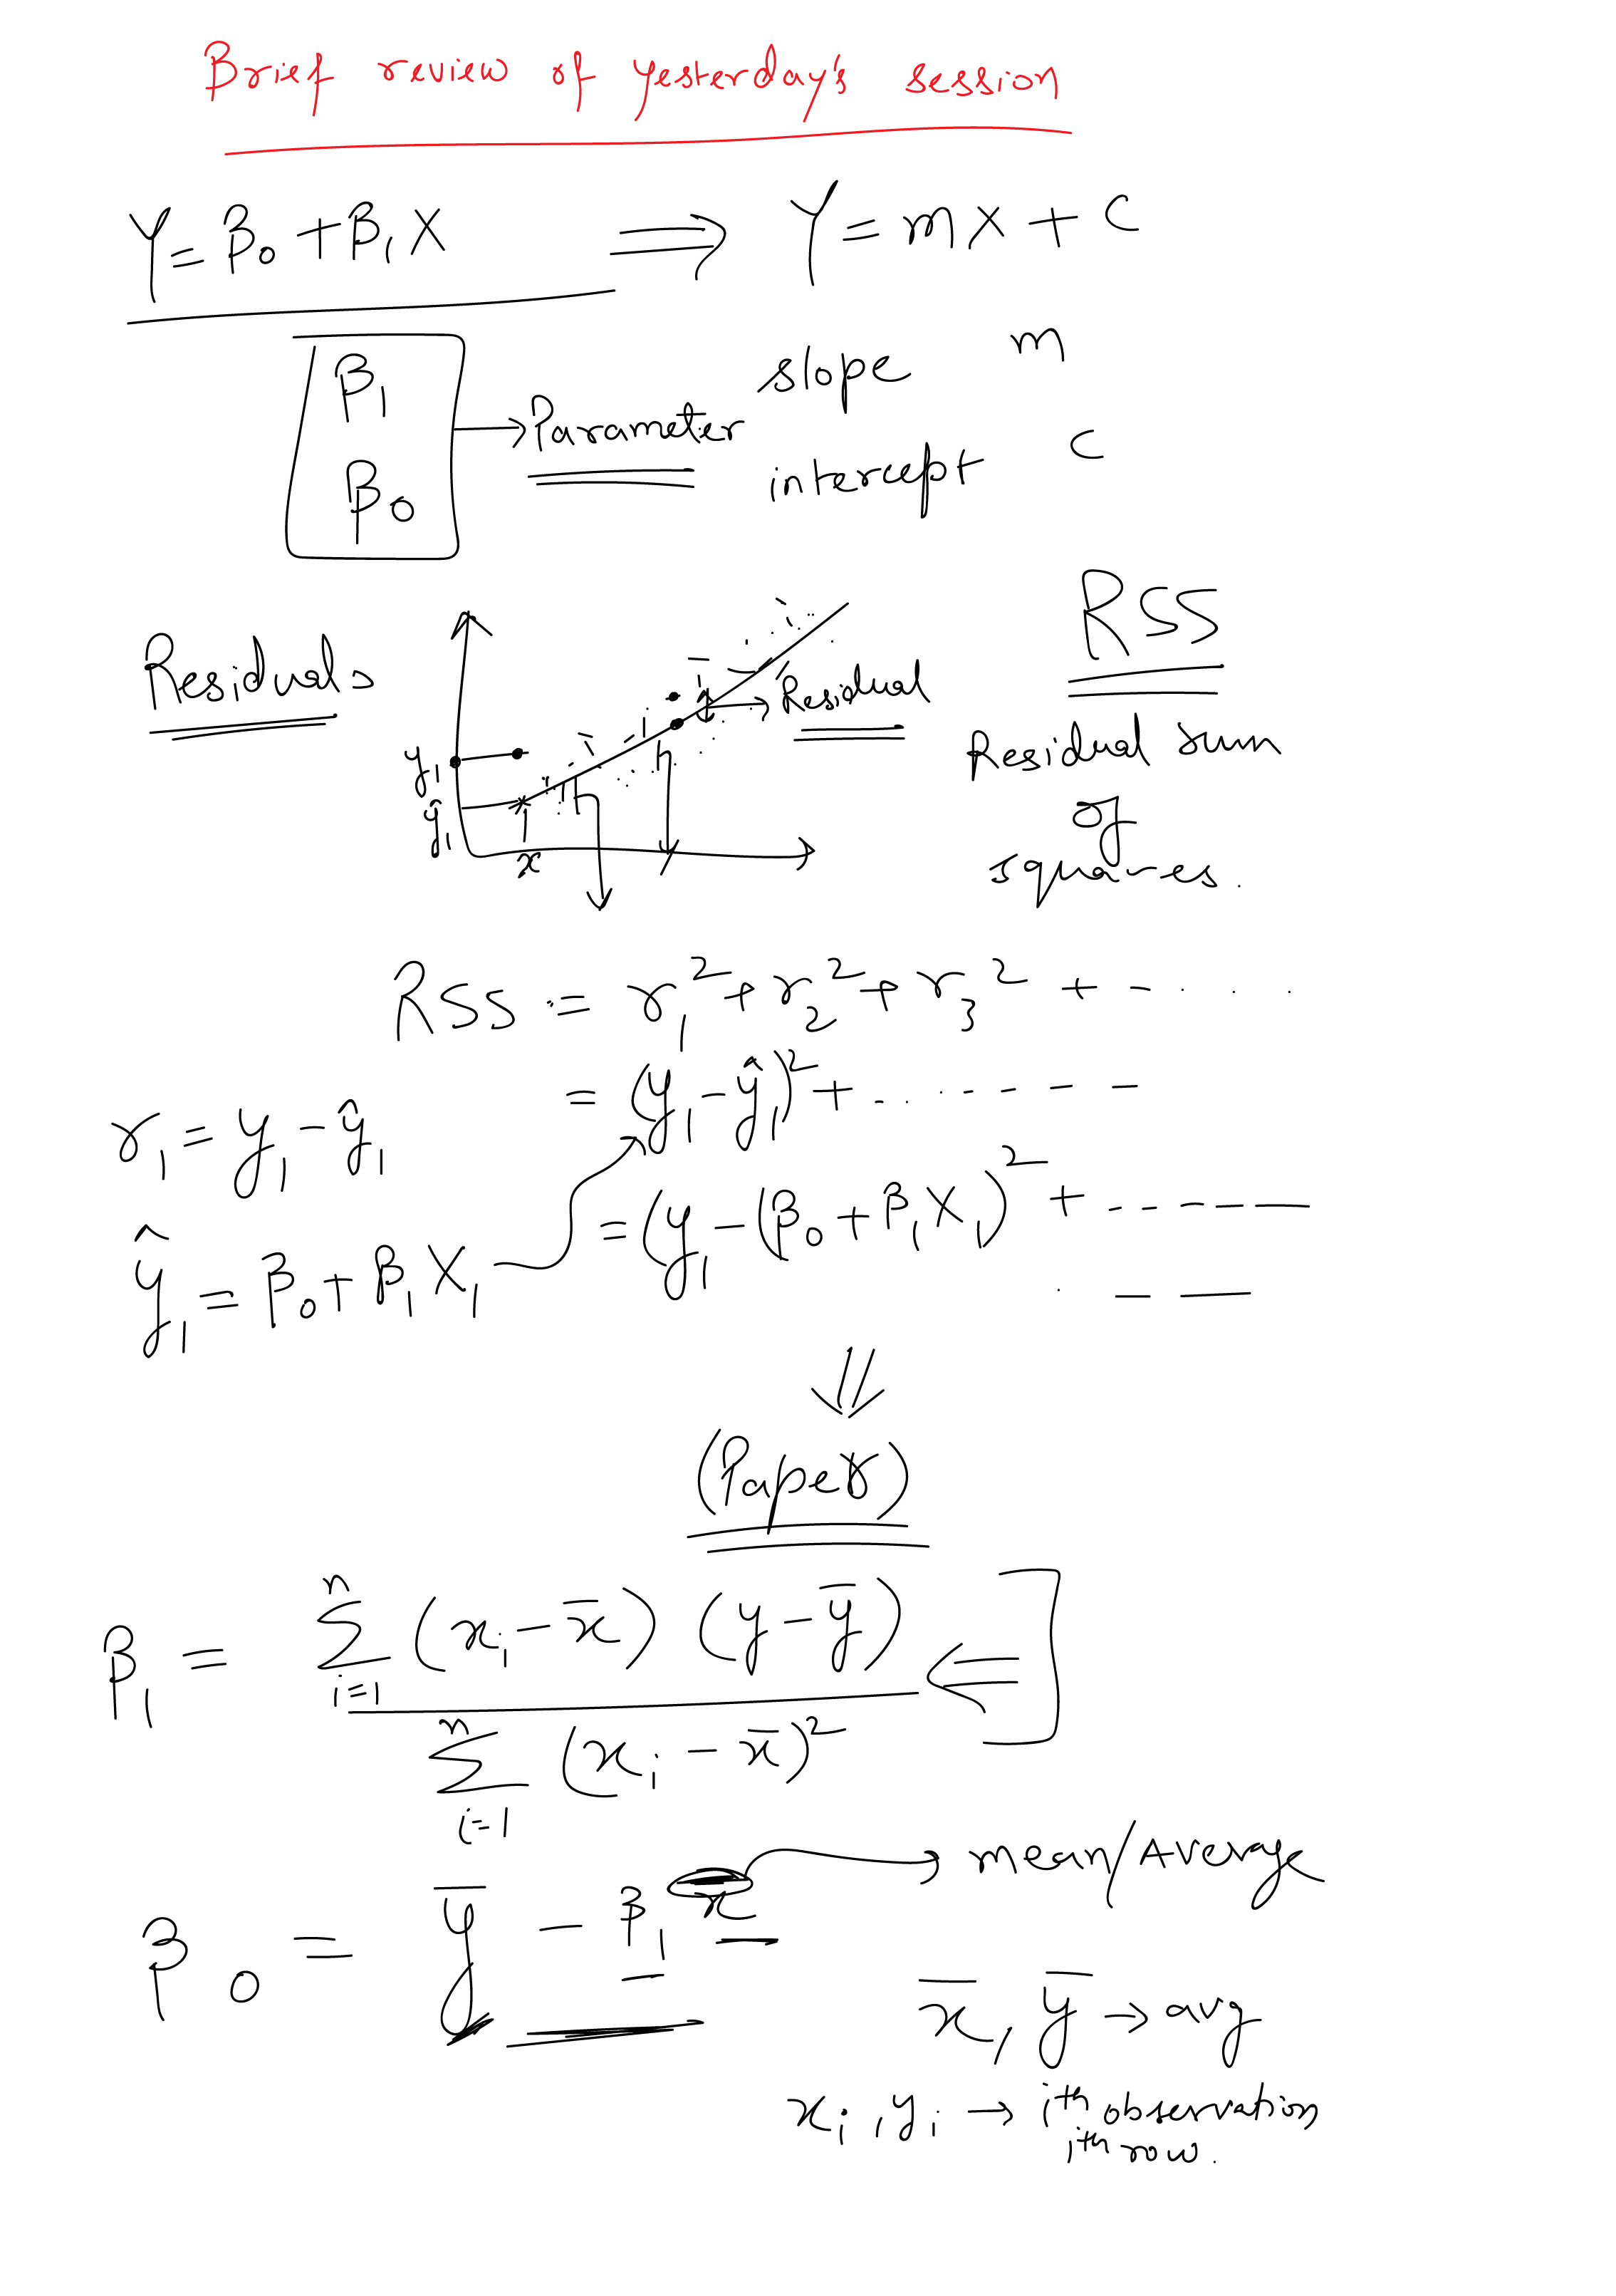 Brief review of yesterday's session
Y = β₀ + β₁X ⟹ Y = mX + c
β₁ → Parameter slope m
β₀ intercept c
Residuals
RSS
Residual
Residual sum
of
squares.
y₁
ŷ₁
x
RSS = r₁² + r₂² + r₃² + - . . . .
= (y₁ - ŷ₁)² + . . . . - - - -
r₁ = y₁ - ŷ₁
= (y₁ - (β₀ + β₁X₁)² + - - - - -
ŷ₁ = β₀ + β₁X₁
⇓
(Paper)
β₁ = n Σ i=1 (xᵢ - x̄) (y - ȳ) ⟸ ]
n Σ i=1 (xᵢ - x̄)²
β₀ = ȳ - β₁ x̄ → mean/Average
x̄, ȳ → avg
xᵢ, yᵢ → iᵗʰ observation
iᵗʰ row.